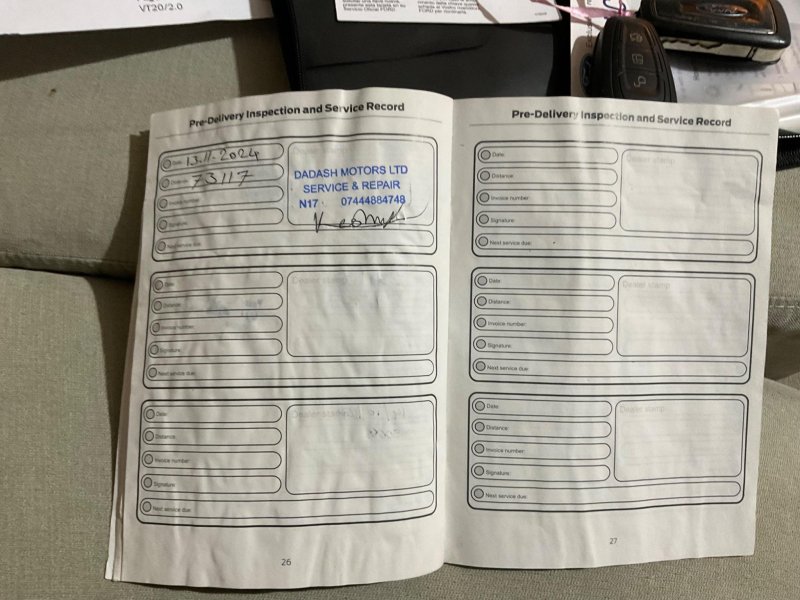 VT20/2.0
Servicio Oficial FORD
FORD per nominarla.
Pre-Delivery Inspection and Service Record
Date: 13.11.2024
73117
Invoice number:
Signature:
Next service due:
DADASH MOTORS LTD
SERVICE & REPAIR
N17 07444884748
Date:
Distance:
Invoice number:
Signature:
Next service due:
Dealer stamp
Date:
Distance:
Invoice number:
Signature:
Next service due:
Dealer stamp
26
Pre-Delivery Inspection and Service Record
Date:
Distance:
Invoice number:
Signature:
Next service due:
Dealer stamp
Date:
Distance:
Invoice number:
Signature:
Next service due:
Dealer stamp
Date:
Distance:
Invoice number:
Signature:
Next service due:
Dealer stamp
27